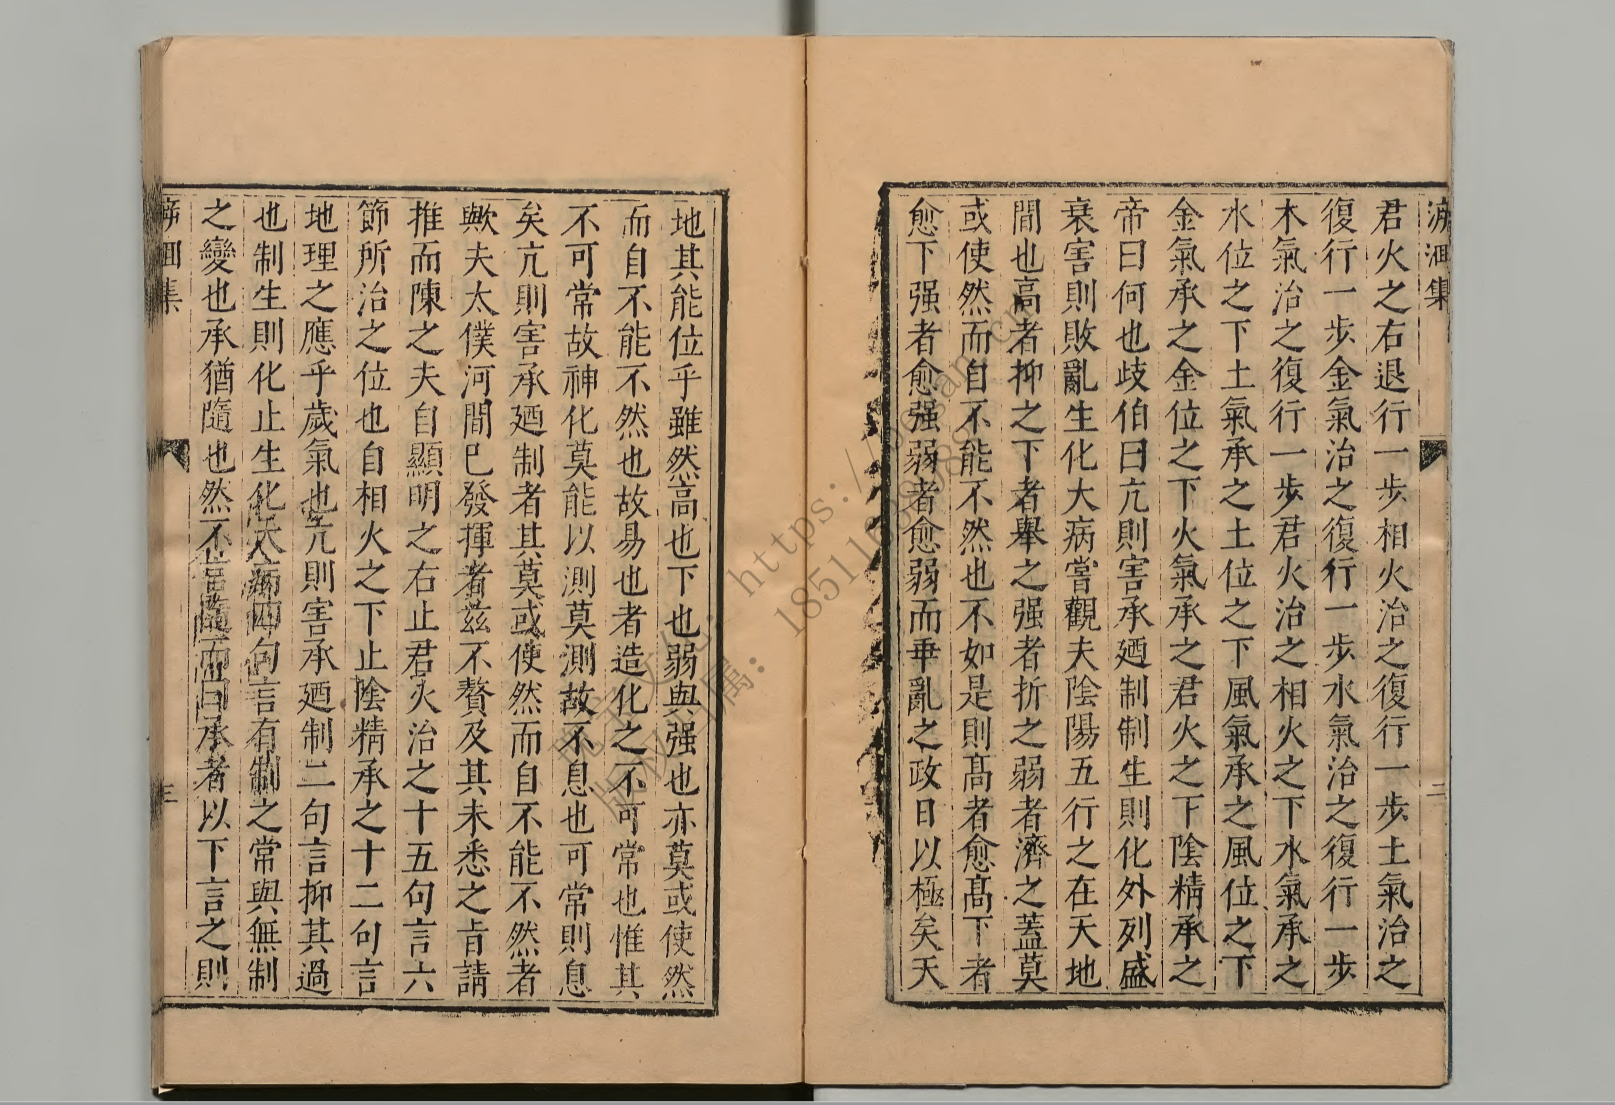 泝洄集
二
君火之右退行一步相火治之復行一步土氣治之
復行一步金氣治之復行一步水氣治之復行一步
木氣治之復行一步君火治之相火之下水氣承之
水位之下土氣承之土位之下風氣承之風位之下
金氣承之金位之下火氣承之君火之下陰精承之
帝曰何也歧伯曰亢則害承廼制制生則化外列盛
衰害則敗亂生化大病嘗觀夫陰陽五行之在天地
間也高者抑之下者舉之强者折之弱者濟之蓋莫
或使然而自不能不然也不如是則髙者愈髙下者
愈下强者愈强弱者愈弱而乖亂之政日以極矣天
地其能位乎雖然高也下也弱與强也亦莫或使然
而自不能不然也故易也者造化之不可常也惟其
不可常故神化莫能以測莫測故不息也可常則息
矣亢則害承廼制者其莫或使然而自不能不然者
歟夫太僕河間已發揮者兹不贅及其未悉之旨請
推而陳之夫自顯明之右止君火治之十五句言六
節所治之位也自相火之下止陰精承之十二句言
地理之應乎歲氣也亢則害承廼制二句言抑其過
也制生則化止生化大病四句言有制之常與無制
之變也承猶隨也然不言隨而曰承者以下言之則
三
https://